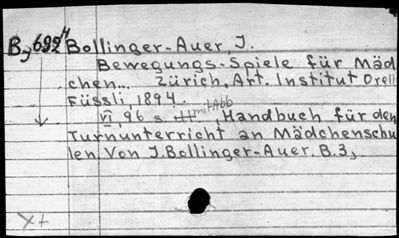 B, 692 Bollinger-Auer, J.
Bewegungs-Spiele für Mäd
chen... Zürich, Art. Institut Orell
Füssli, 1894.
VI, 96 s. mit Abb. , Handbuch für den
Turnunterricht an Mädchenschu
len Von J. Bollinger-Auer. B.3,
X+